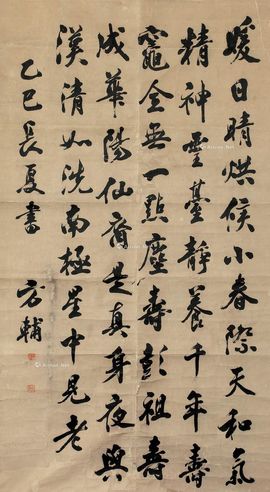 暖日晴烘候小春際天和氣
精神靈臺靜養千年壽
竈全無一點塵壽彭祖壽
成華陽仙裔是真身夜與
漢清如洗南極星中見老
乙巳長夏書 方輔